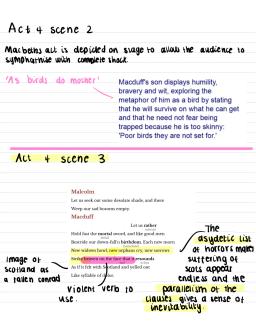 Act 4 scene 2
Macbeths act is depicted on stage to allow the audience to
sympathise with complete shock.
'As birds do mother'
Macduff's son displays humility,
bravery and wit, exploring the
metaphor of him as a bird by stating
that he will survive on what he can get
and that he need not fear being
trapped because he is too skinny:
'Poor birds they are not set for.'
Act 4 scene 3
Malcolm
Let us seek out some desolate shade, and there
Weep our sad bosoms empty.
Macduff
Let us rather
Hold fast the mortal sword, and like good men
Bestride our down-fall'n birthdom. Each new morn
New widows howl, new orphans cry, new sorrows
Strike heaven on the face that it resounds
As if it felt with Scotland and yelled out
Like syllable of dolour.
Image of
Scotland as
a fallen comrad
Violent verb to
use.
The
asydetic list
of horrors makes
suffering of
scots appear
endless and the
parallelism of the
clauses gives a sense of
inevitability.